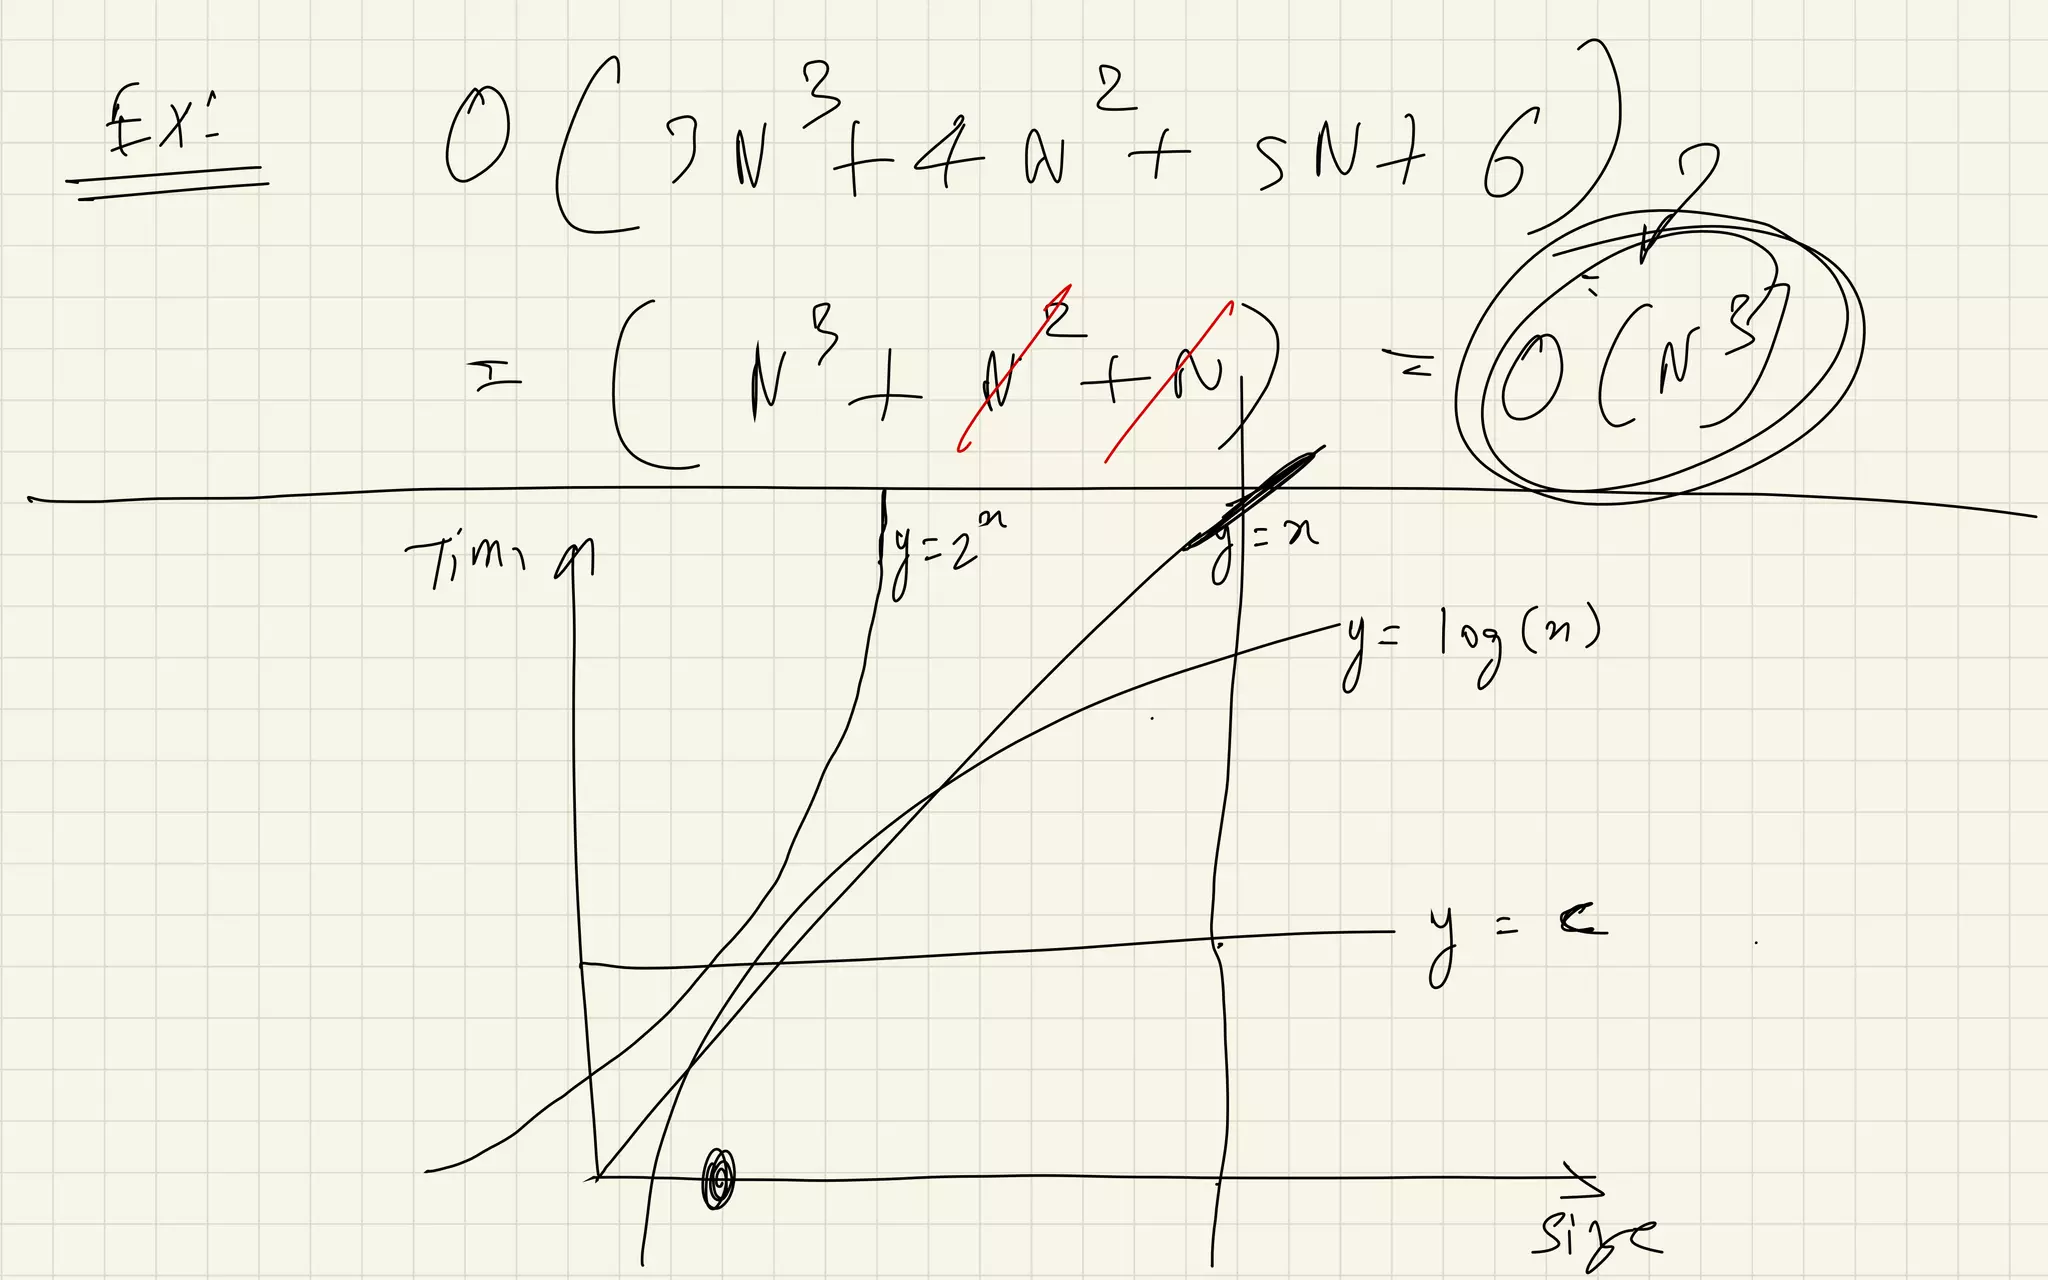 Ex:
O(3N³ + 4N² + 5N + 6)
= (N³ + N² + N) = O(N³)
?
y = 2ˣ
y = x
y = log(x)
y = c
size